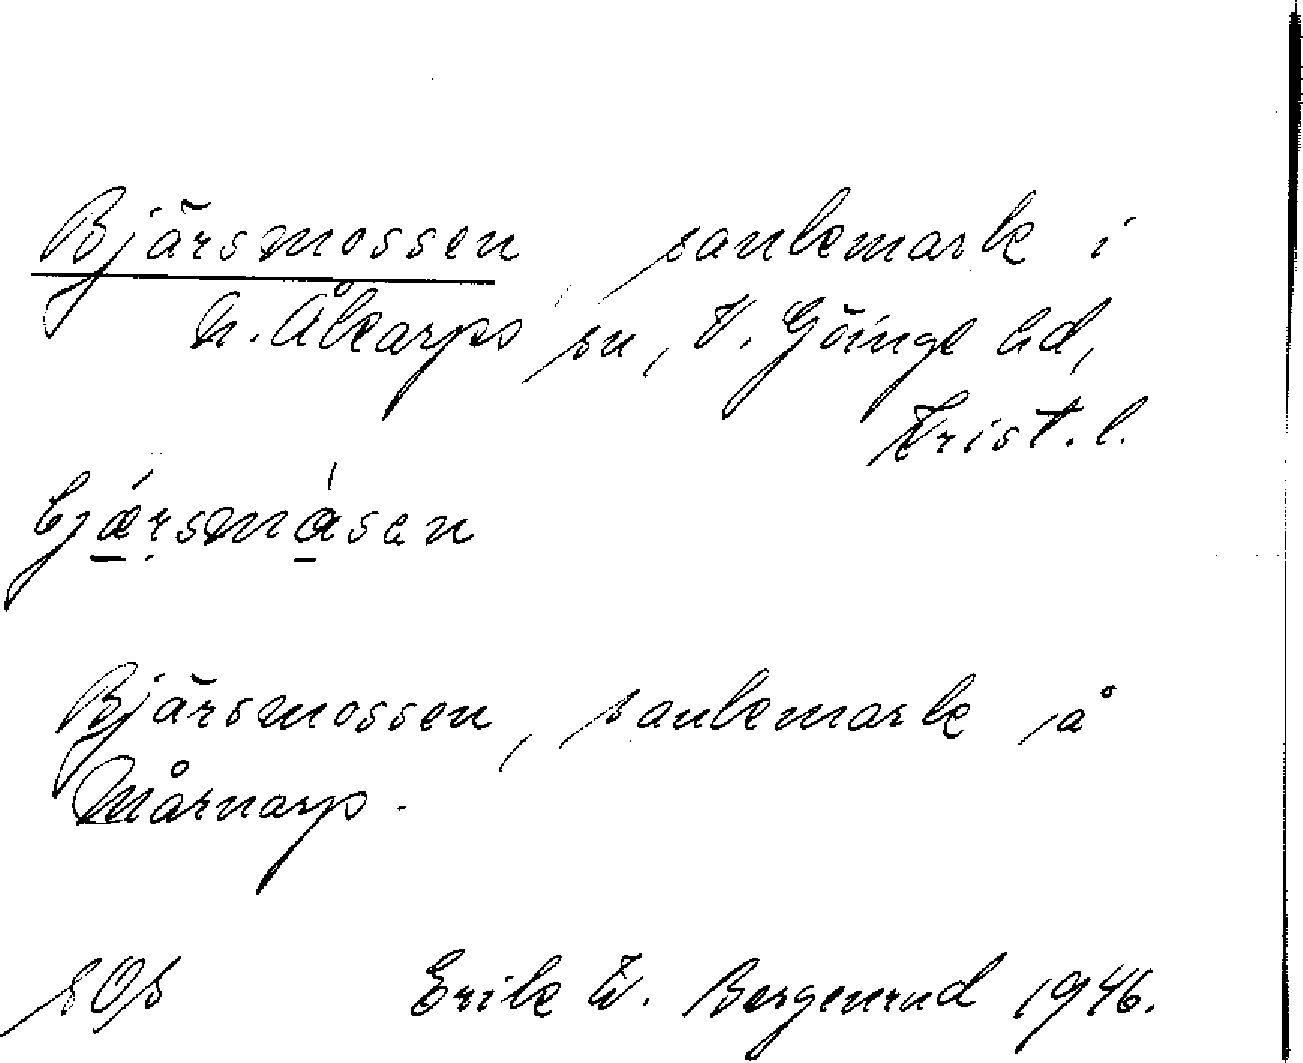 Bjärsmossen, sankmark i
N. Åkarps sn, V. Göinge hd,
Krist. l.
bjǽ̱ṛsma̱̍sen
Bjärsmossen, sankmark på
Mårnarp.
SOS Erik W. Bergenrud 1946.